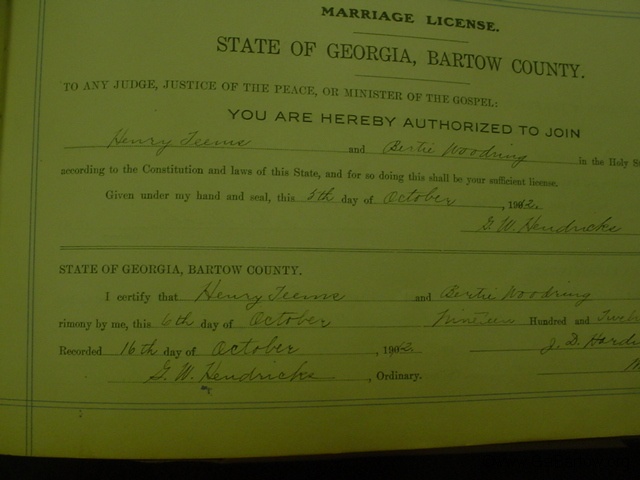 MARRIAGE LICENSE.
STATE OF GEORGIA, BARTOW COUNTY.
TO ANY JUDGE, JUSTICE OF THE PEACE, OR MINISTER OF THE GOSPEL:
YOU ARE HEREBY AUTHORIZED TO JOIN
Henry Teems and Bertie Woodring in the Holy
according to the Constitution and laws of this State, and for so doing this shall be your sufficient license.
Given under my hand and seal, this 5th day of October, 1912.
G. W. Hendricks
STATE OF GEORGIA, BARTOW COUNTY.
I certify that Henry Teems and Bertie Woodring
rimony by me, this 6th day of October Nineteen Hundred and
Recorded 16th day of October, 1912. J. D.
G. W. Hendricks, Ordinary.